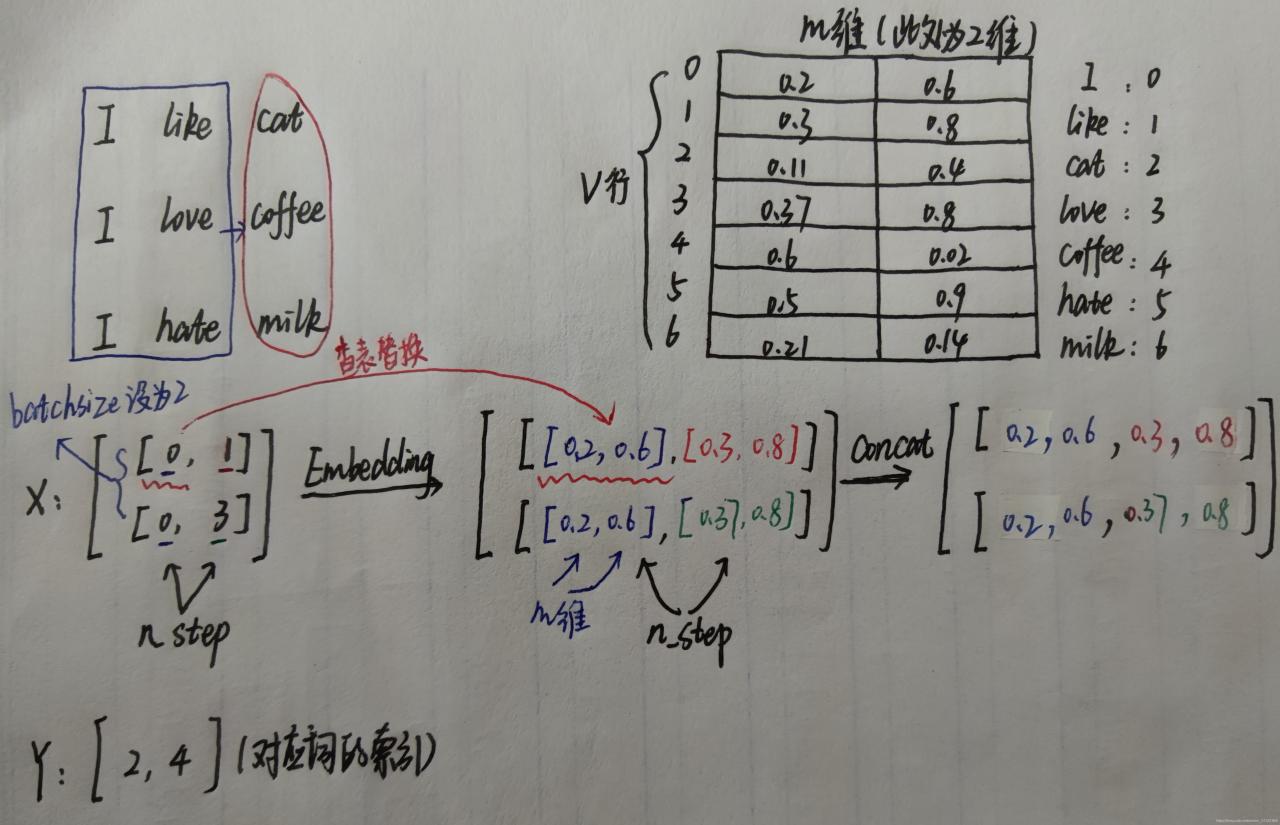 m维(此处为2维)
I like cat
I love coffee
I hate milk
V行
0 0.2 0.6 I : 0
1 0.3 0.8 like : 1
2 0.11 0.4 cat : 2
3 0.37 0.8 love : 3
4 0.6 0.02 coffee : 4
5 0.5 0.9 hate : 5
6 0.21 0.14 milk : 6
查表替换
batchsize设为2
X: [[0, 1] Embedding [[[0.2, 0.6], [0.3, 0.8]] Concat [[0.2, 0.6, 0.3, 0.8]
[0, 3]] [[0.2, 0.6], [0.37, 0.8]]] [0.2, 0.6, 0.37, 0.8]]
n step m维 n_step
Y: [2, 4] (对应词的索引)